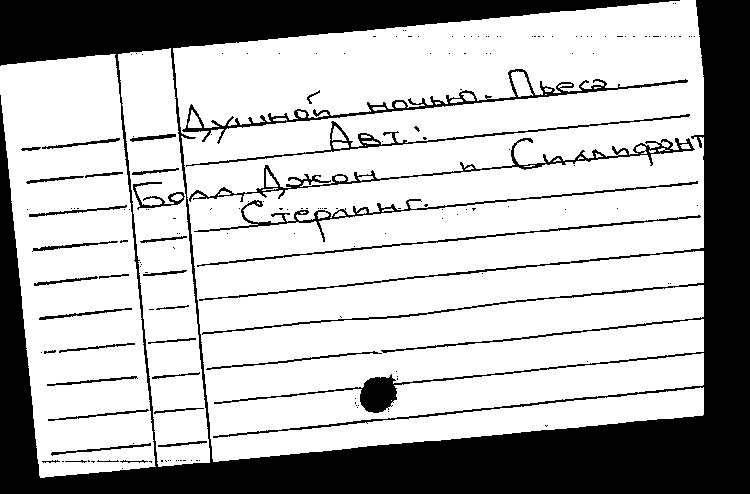 Душной ночью. Пьеса.
Авт.:
Болл, Джон и Силлифант
Стерлинг.